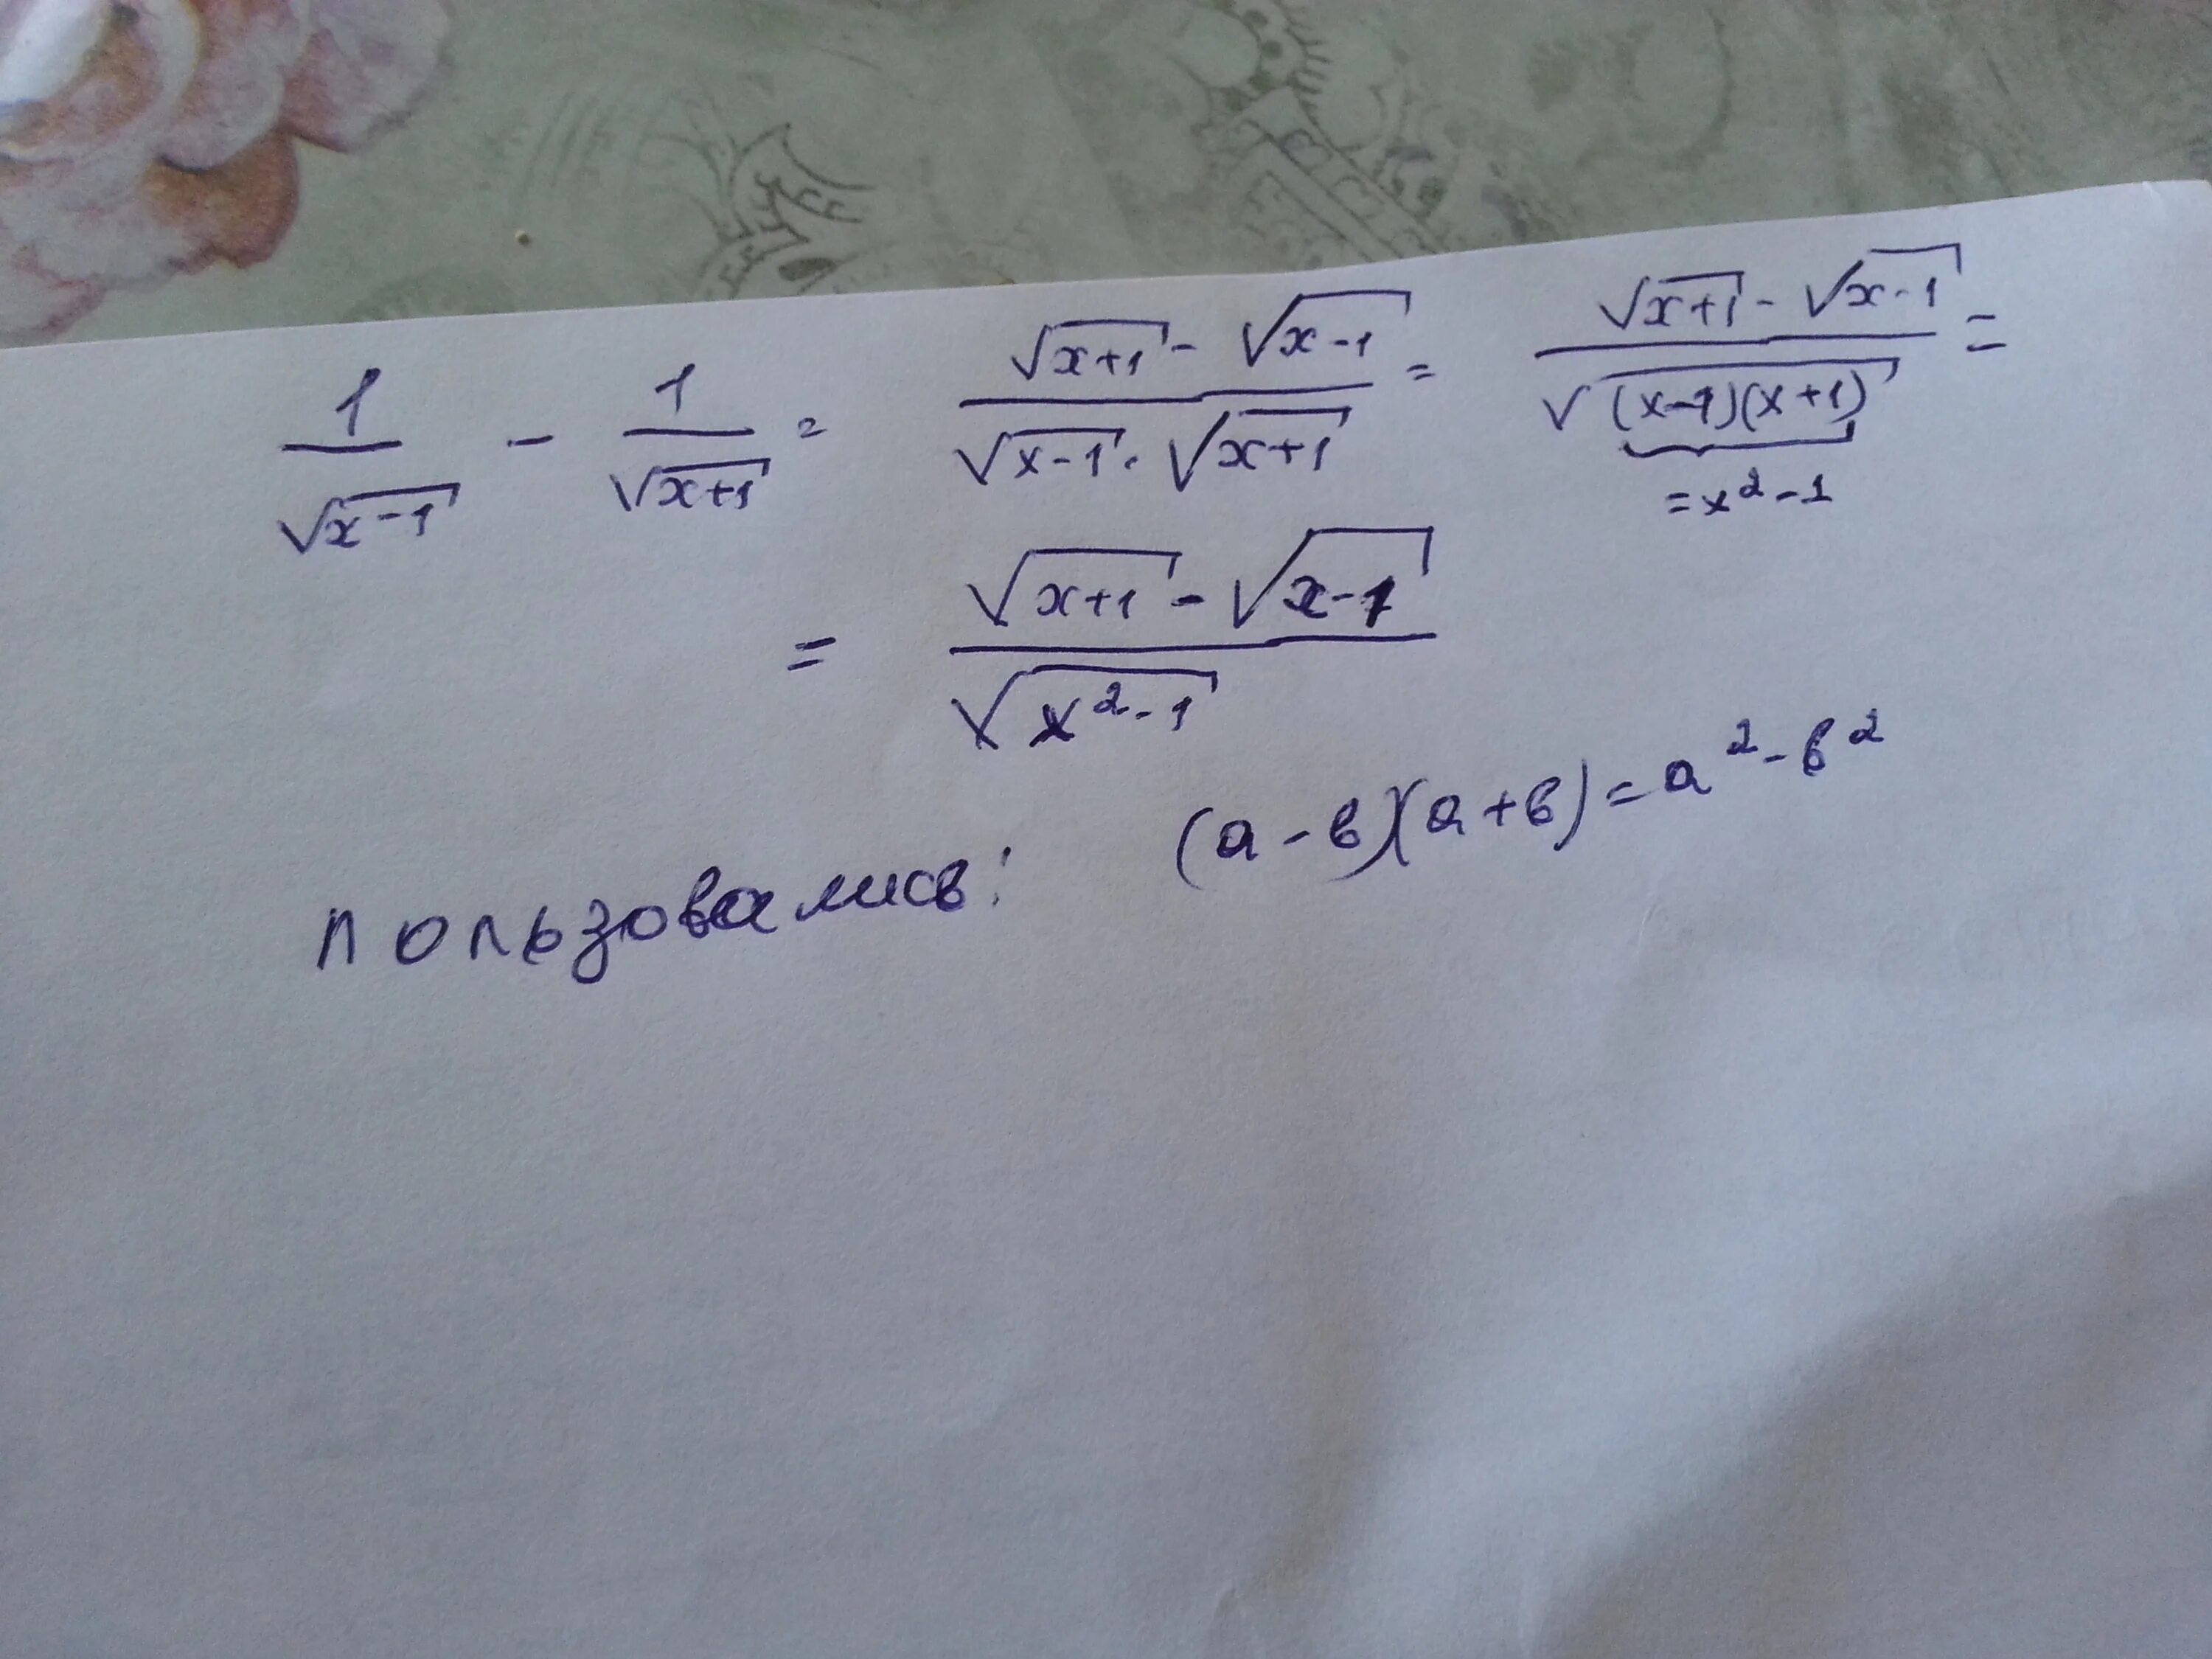 1/√(x-1) - 1/√(x+1) = (√(x+1) - √(x-1))/(√(x-1) · √(x+1)) = (√(x+1) - √(x-1))/√((x-1)(x+1)) =
= x² - 1
= (√(x+1) - √(x-1))/√(x² - 1)
пользовались: (a - в)(a + в) = a² - в²